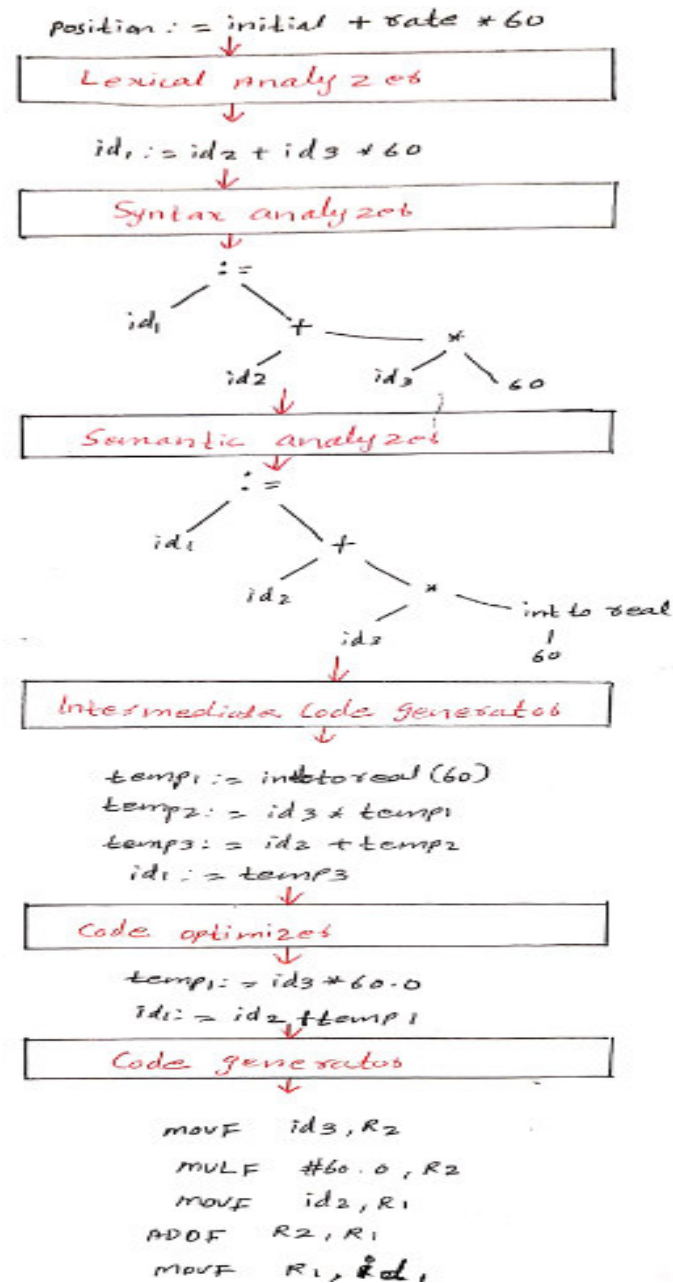 position := initial + rate * 60
Lexical Analyzer
id1 := id2 + id3 * 60
Syntax analyzer
:=
id1 + *
id2 id3 60
Semantic analyzer
:=
id1 +
id2 * int to real
id3 60
Intermediate Code generator
temp1 := inttoreal (60)
temp2 := id3 * temp1
temp3 := id2 + temp2
id1 := temp3
Code optimizer
temp1 := id3 * 60.0
id1 := id2 + temp1
Code generator
MOVF id3, R2
MULF #60.0, R2
MOVF id2, R1
ADDF R2, R1
MOVF R1, id1